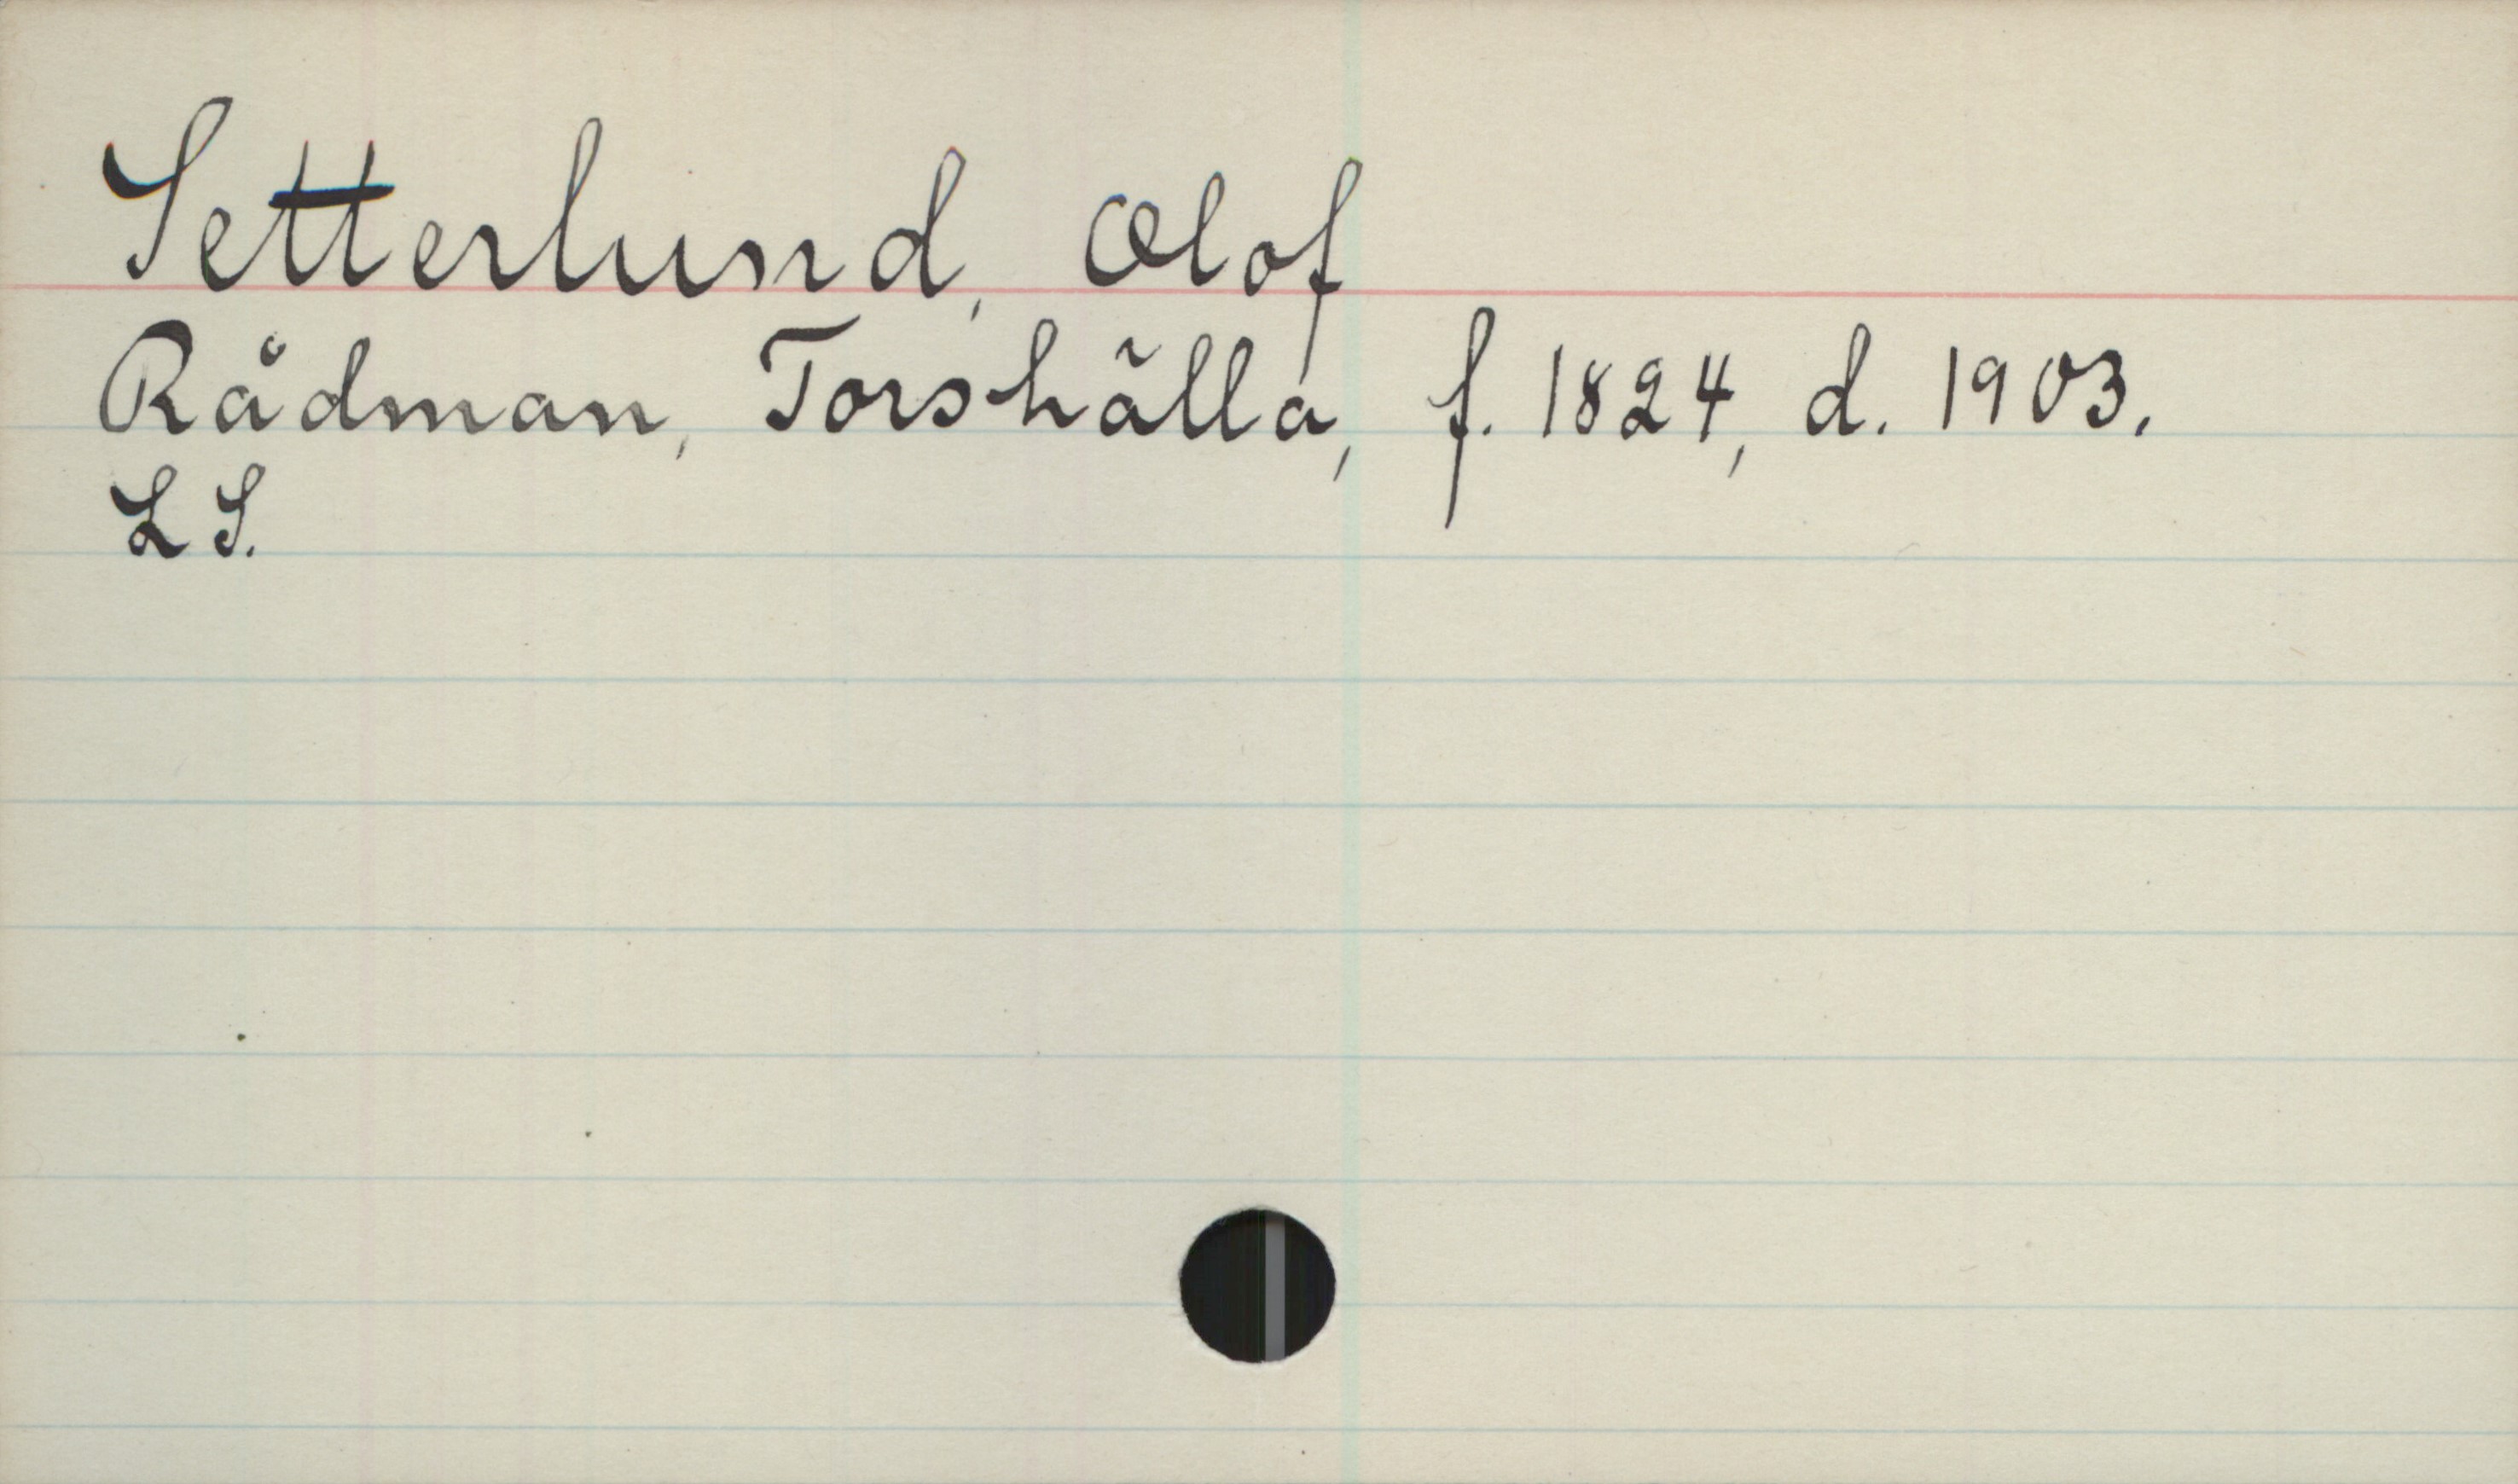 Setterlund, Olof
Rådman, Torshälla, f. 1824, d. 1903.
LS.